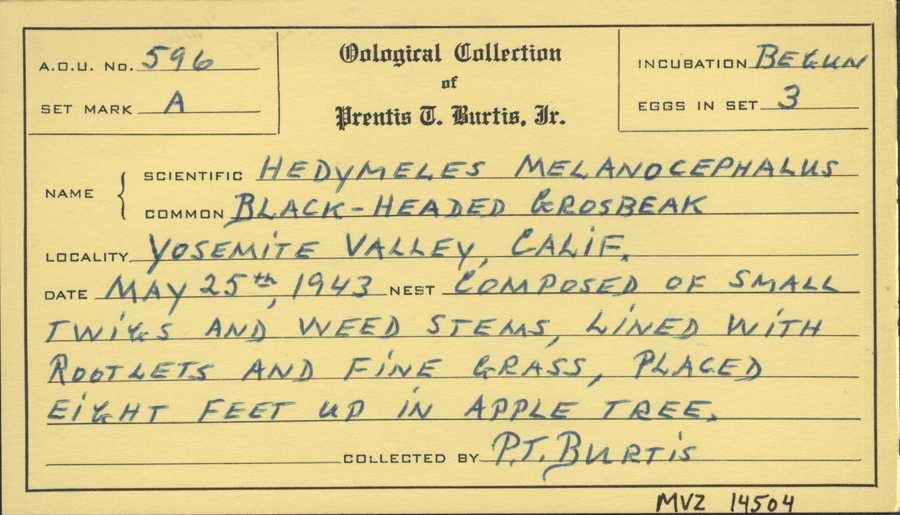 A.O.U. No. 596
SET MARK A
Oological Collection
of
Prentis T. Burtis, Jr.
INCUBATION BEGUN
EGGS IN SET 3
NAME
SCIENTIFIC HEDYMELES MELANOCEPHALUS
COMMON BLACK-HEADED GROSBEAK
LOCALITY YOSEMITE VALLEY, CALIF.
DATE MAY 25th, 1943 NEST COMPOSED OF SMALL
TWIGS AND WEED STEMS, LINED WITH
ROOTLETS AND FINE GRASS, PLACED
EIGHT FEET UP IN APPLE TREE.
COLLECTED BY P.T. BURTIS
MVZ 14504